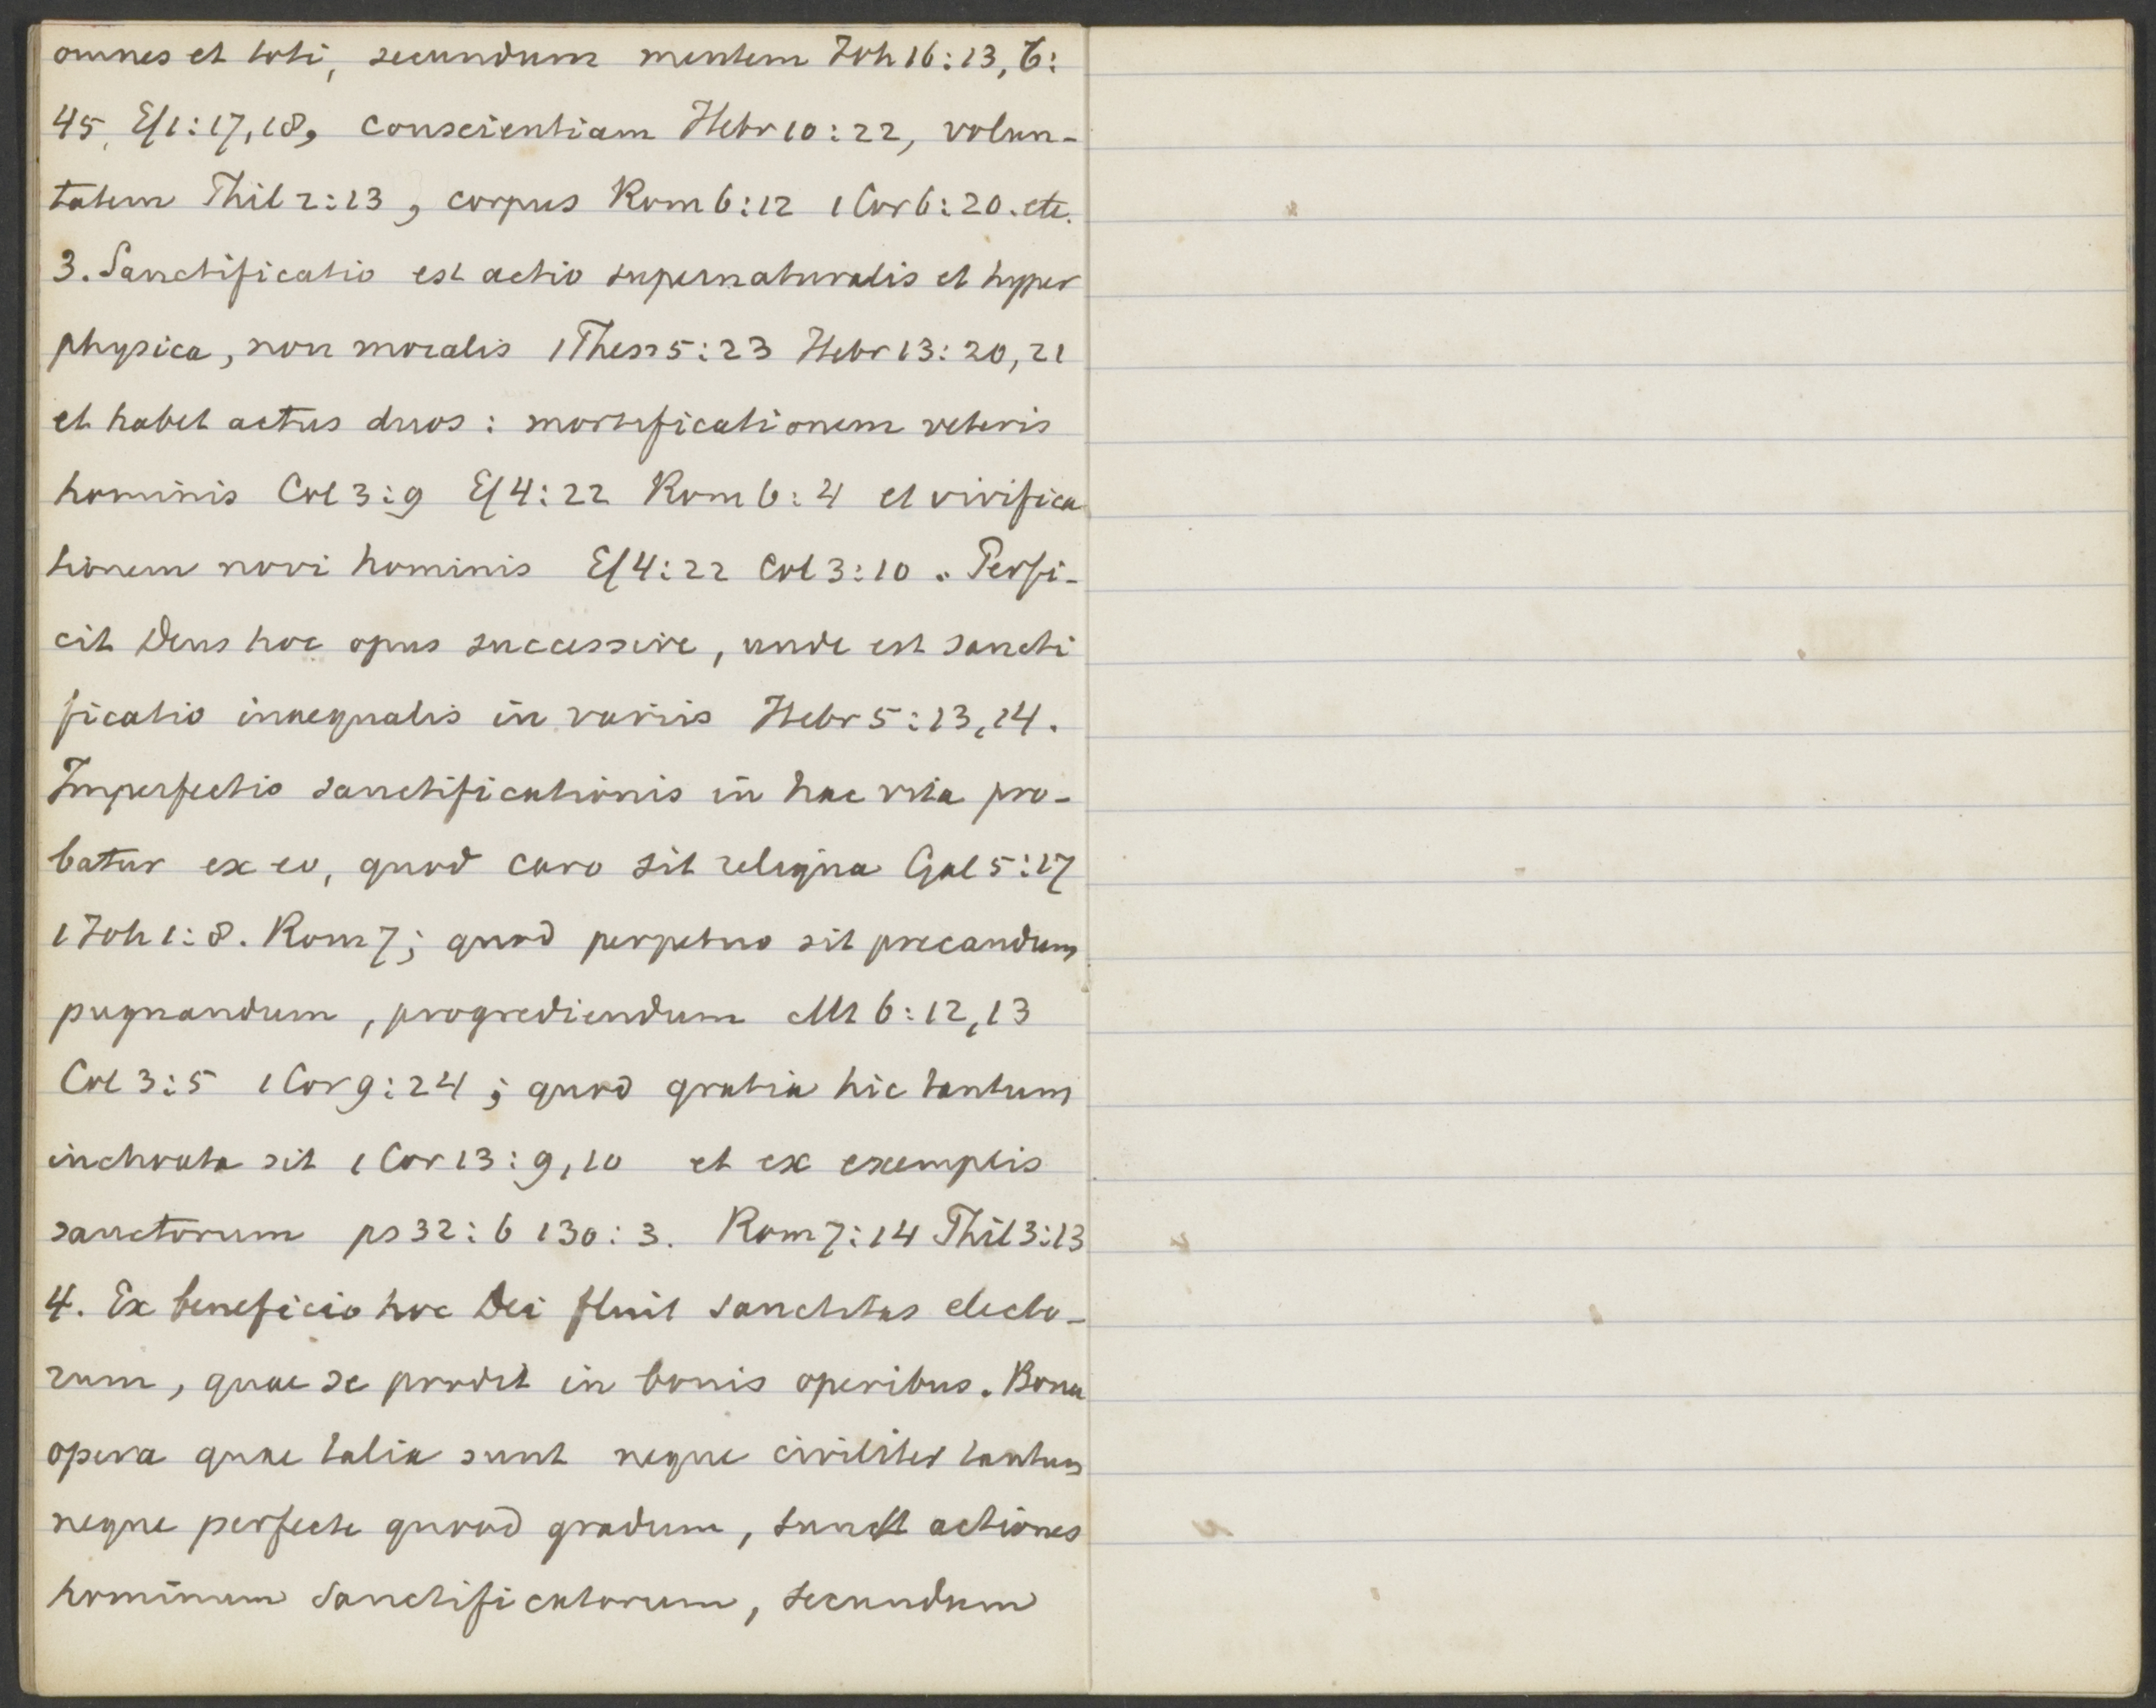 omnes et toti, secundum mentem Joh 16:13, 6:
45, Ef 1:17,18, conscientiam Hebr 10:22, volun-
tatem Phil 2:13, corpus Rom 6:12 1 Cor 6:20. etc.
3. Sanctificatio est actio supernaturalis et hyper
physica, non moralis 1 Thess 5:23 Hebr 13:20,21
et habet actus duos: mortificationem veteris
hominis Col 3:9 Ef 4:22 Rom 6:4 et vivifica
tionem novi hominis Ef 4:22 Col 3:10. Perfi-
cit Deus hoc opus successive, unde est sancti
ficatio inaequalis in variis Hebr 5:13,14.
Imperfectio sanctificationis in hac vita pro-
batur ex eo, quod caro sit reliqua Gal 5:17
1 Joh 1:8. Rom 7; quod perpetuo sit precandum
pugnandum, progrediendum Mt 6:12,13
Col 3:5 1 Cor 9:24; quod gratia hic tantum
inchoata sit 1 Cor 13:9,10 et ex exemplis
sanctorum ps 32:6 130:3. Rom 7:14 Phil 3:13
4. Ex beneficio hoc Dei fluit sanctitas electo-
rum, quae se prodit in bonis operibus. Bona
opera quae talia sunt neque civiliter tantum
neque perfecte quoad gradum, sunt actiones
hominum sanctificatorum, secundum